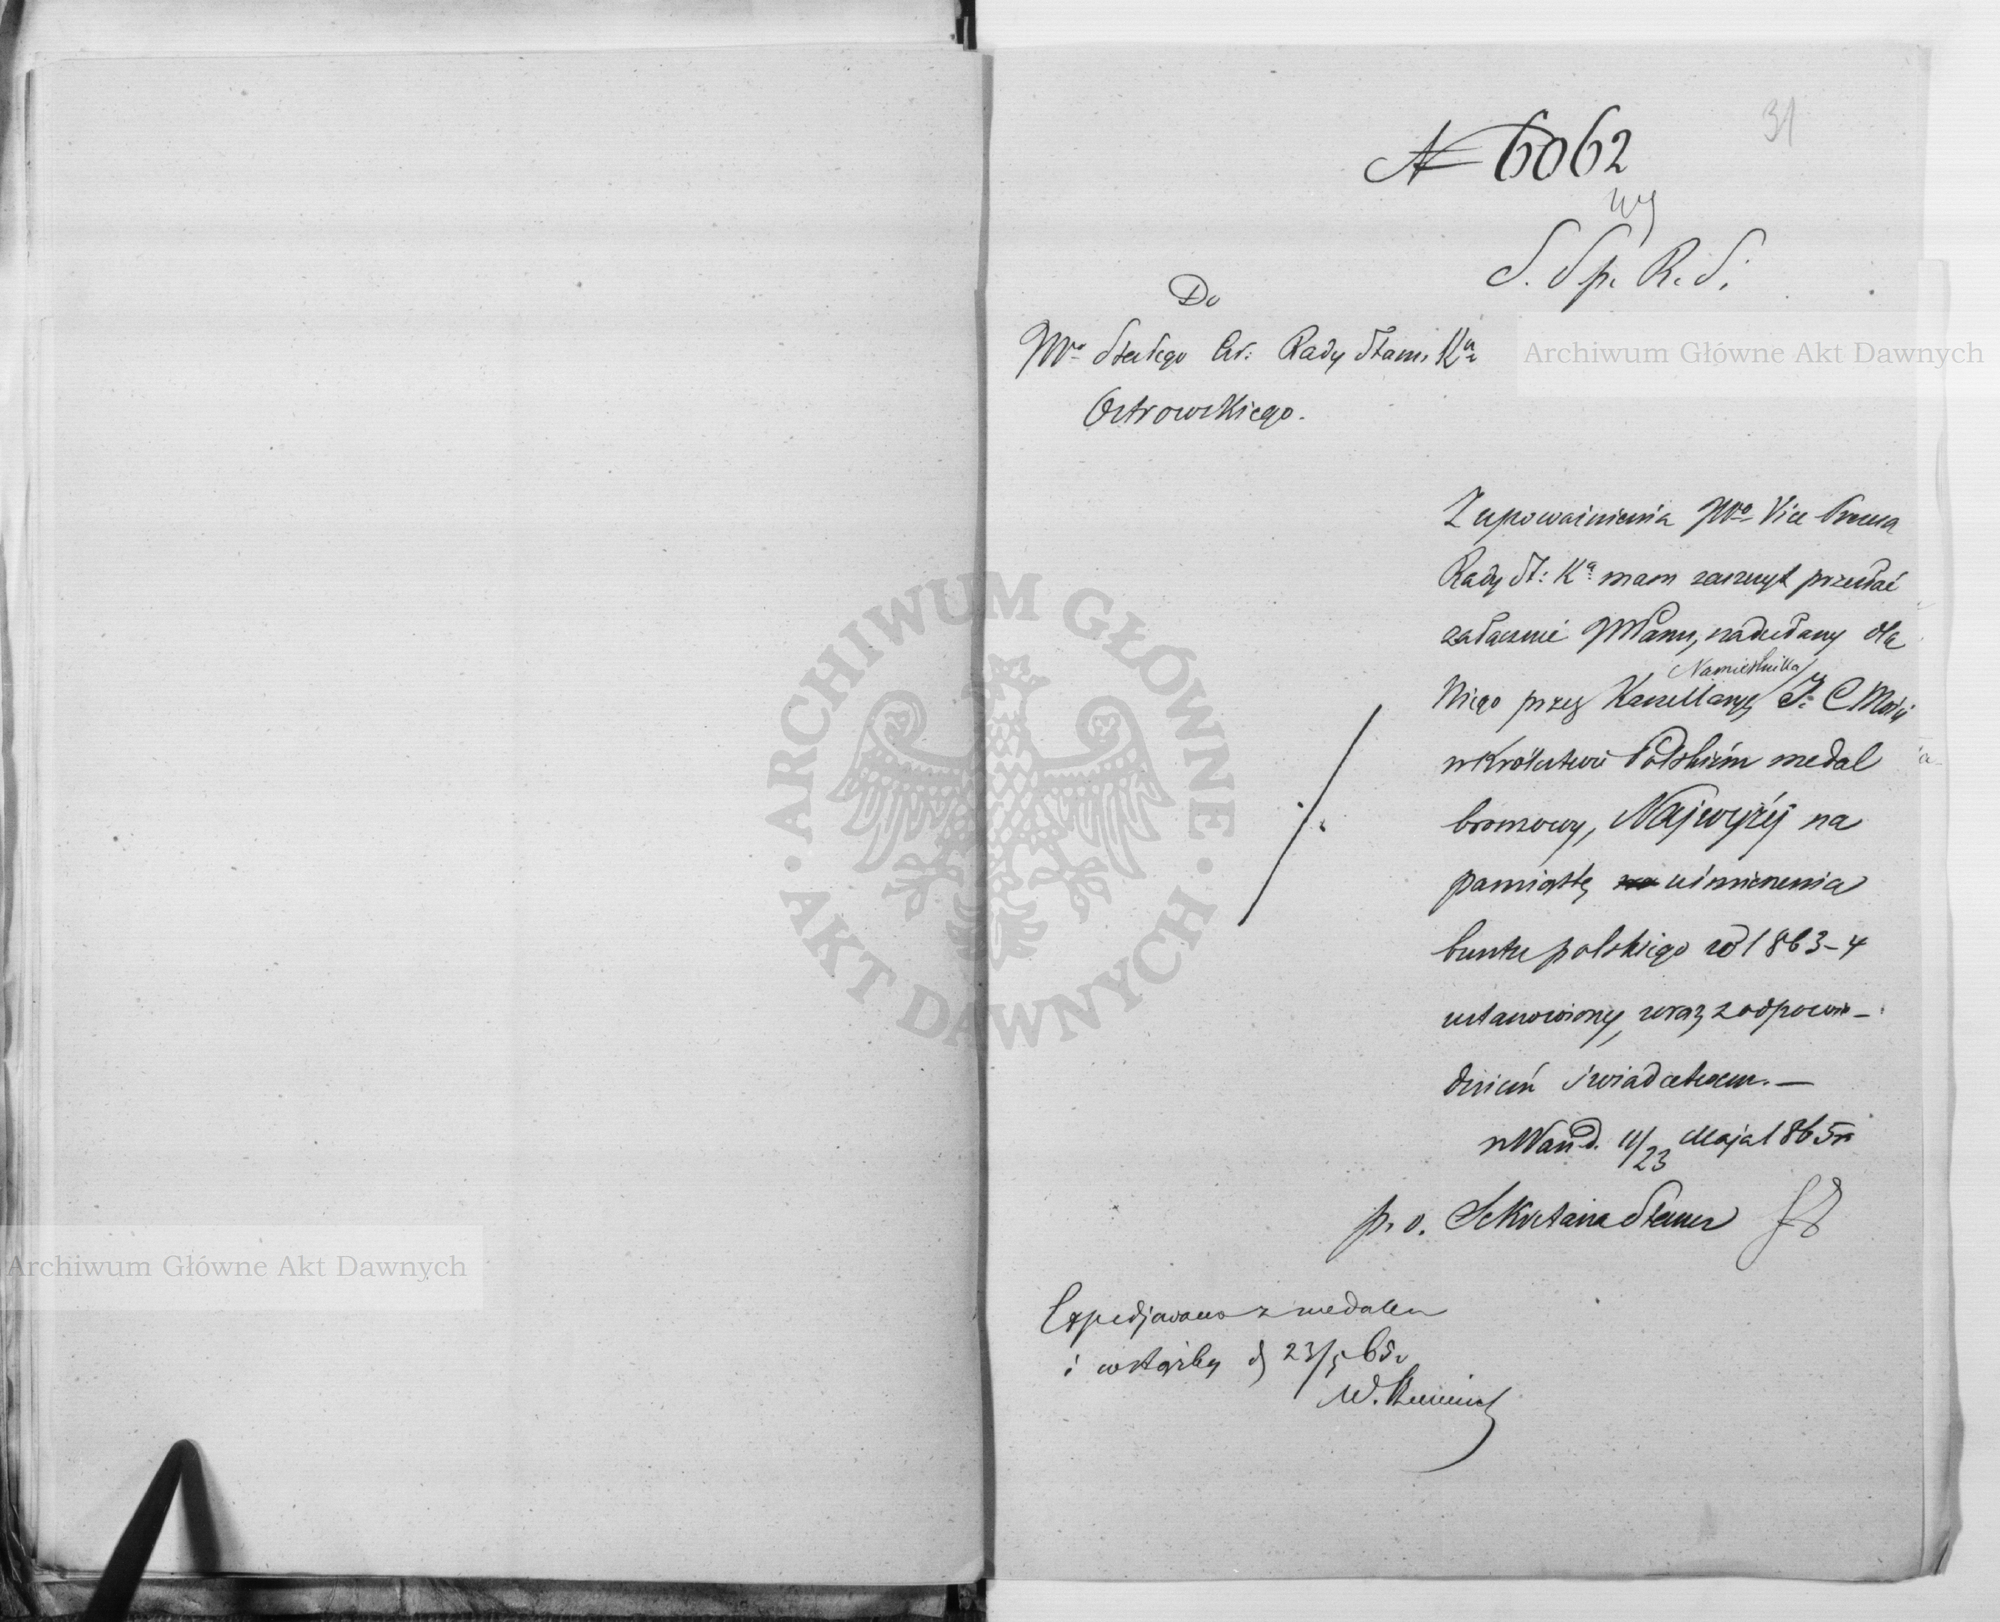 31
N 6062
S. Sp. R. S.
Do
JWo Stałego Czł: Rady Stanu Ka
Ostrowskiego.
Archiwum Główne Akt Dawnych
Z upoważnienia JWo Vice Prezesa
Rady St: Ka mam zaszczyt przesłać
załącznie JWPanu, nadesłany dla
Namiestnika
Niego przez Kancellaryę J. C Mości
w Królestwie Polskiém medal
bronzowy, Najwyżéj na
pamiątkę uśmierzenia
buntu polskiego 1863-4
ustanowiony, wraz z odpowie-
dniém świadectwem. —
w Warsz d. 11/23 Maja 1865 r
p. o. Sekretarza Stanu
Expedjowano z medalem
i wstążką d 23/5 65 r
ARCHIWUM GŁÓWNE · AKT DAWNYCH ·
Archiwum Główne Akt Dawnych